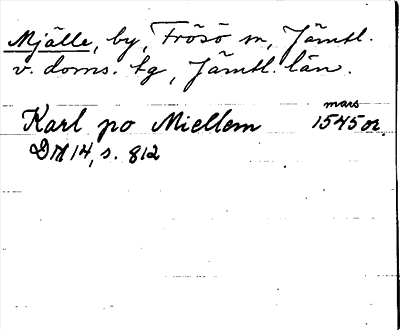 Mjälle, by, Frösö sn, Jämtl.
v. doms. tg, Jämtl. län.
mars
Karl po Miellem 1545 or.
DN 14, s. 812